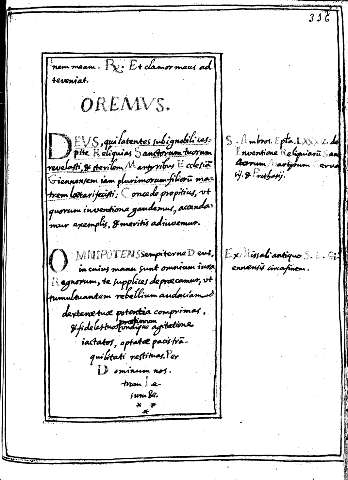 316
nem meam. ℟. Et clamor meus ad
te veniat.
OREMVS.
DEVS, qui latentes sub ignobili cas-
pite Reliquias Sanctorum tuorum
revelasti, & sterilem Martyribus Ecclesiam
Giennensem iam plurimorum filiorum ma-
trem laetari fecisti; Concede propitius, vt
quorum inventione gaudemus, accenda-
mur exemplis, & meritis adiuvemur.
OMNIPOTENS sempiterne Deus,
in cuius manu sunt omnium iura
Regnorum, te supplices deprecamur, vt
tumultuantem rebellium audaciam
dexterae tuae potentia comprimas,
& fideles tuos undique agitatione
iactatos, optatae pacis tran-
quilitati restituas. Per
Dominum nos-
trum Ie-
sum &c.
S. Ambros. Epta. LXXXV. de
Inventione Reliquiarum San-
ctorum Martyrum Gerva-
sij, & Prothasij.
Ex Missali antiquo S. E. Gi-
ennensis